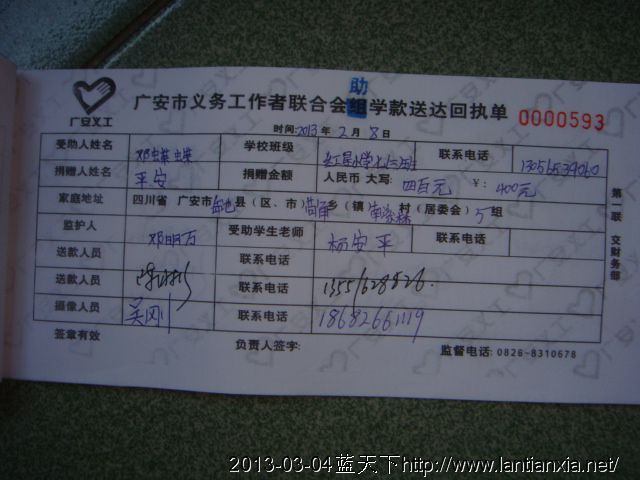 助
广安市义务工作者联合会组学款送达回执单 0000593
广安义工
时间:2013年2月8日
受助人姓名 邓蝶蝶 学校班级 联系电话
捐赠人姓名 平安 捐赠金额 人民币 大写: 四百元 ¥: 400元
家庭地址 四川省 广安市 县(区、市) 乡(镇 村(居委会) 5组
监护人 邓明万 受助学生老师 杨安平 联系电话
送款人员 联系电话 13551628526.
送款人员 联系电话
摄像人员 吴刚 联系电话 18682661119
签章有效 负责人签字: 监督电话: 0826-8310678
第一联 交财务部
2013-03-04蓝天下http://www.lantianxia.net/